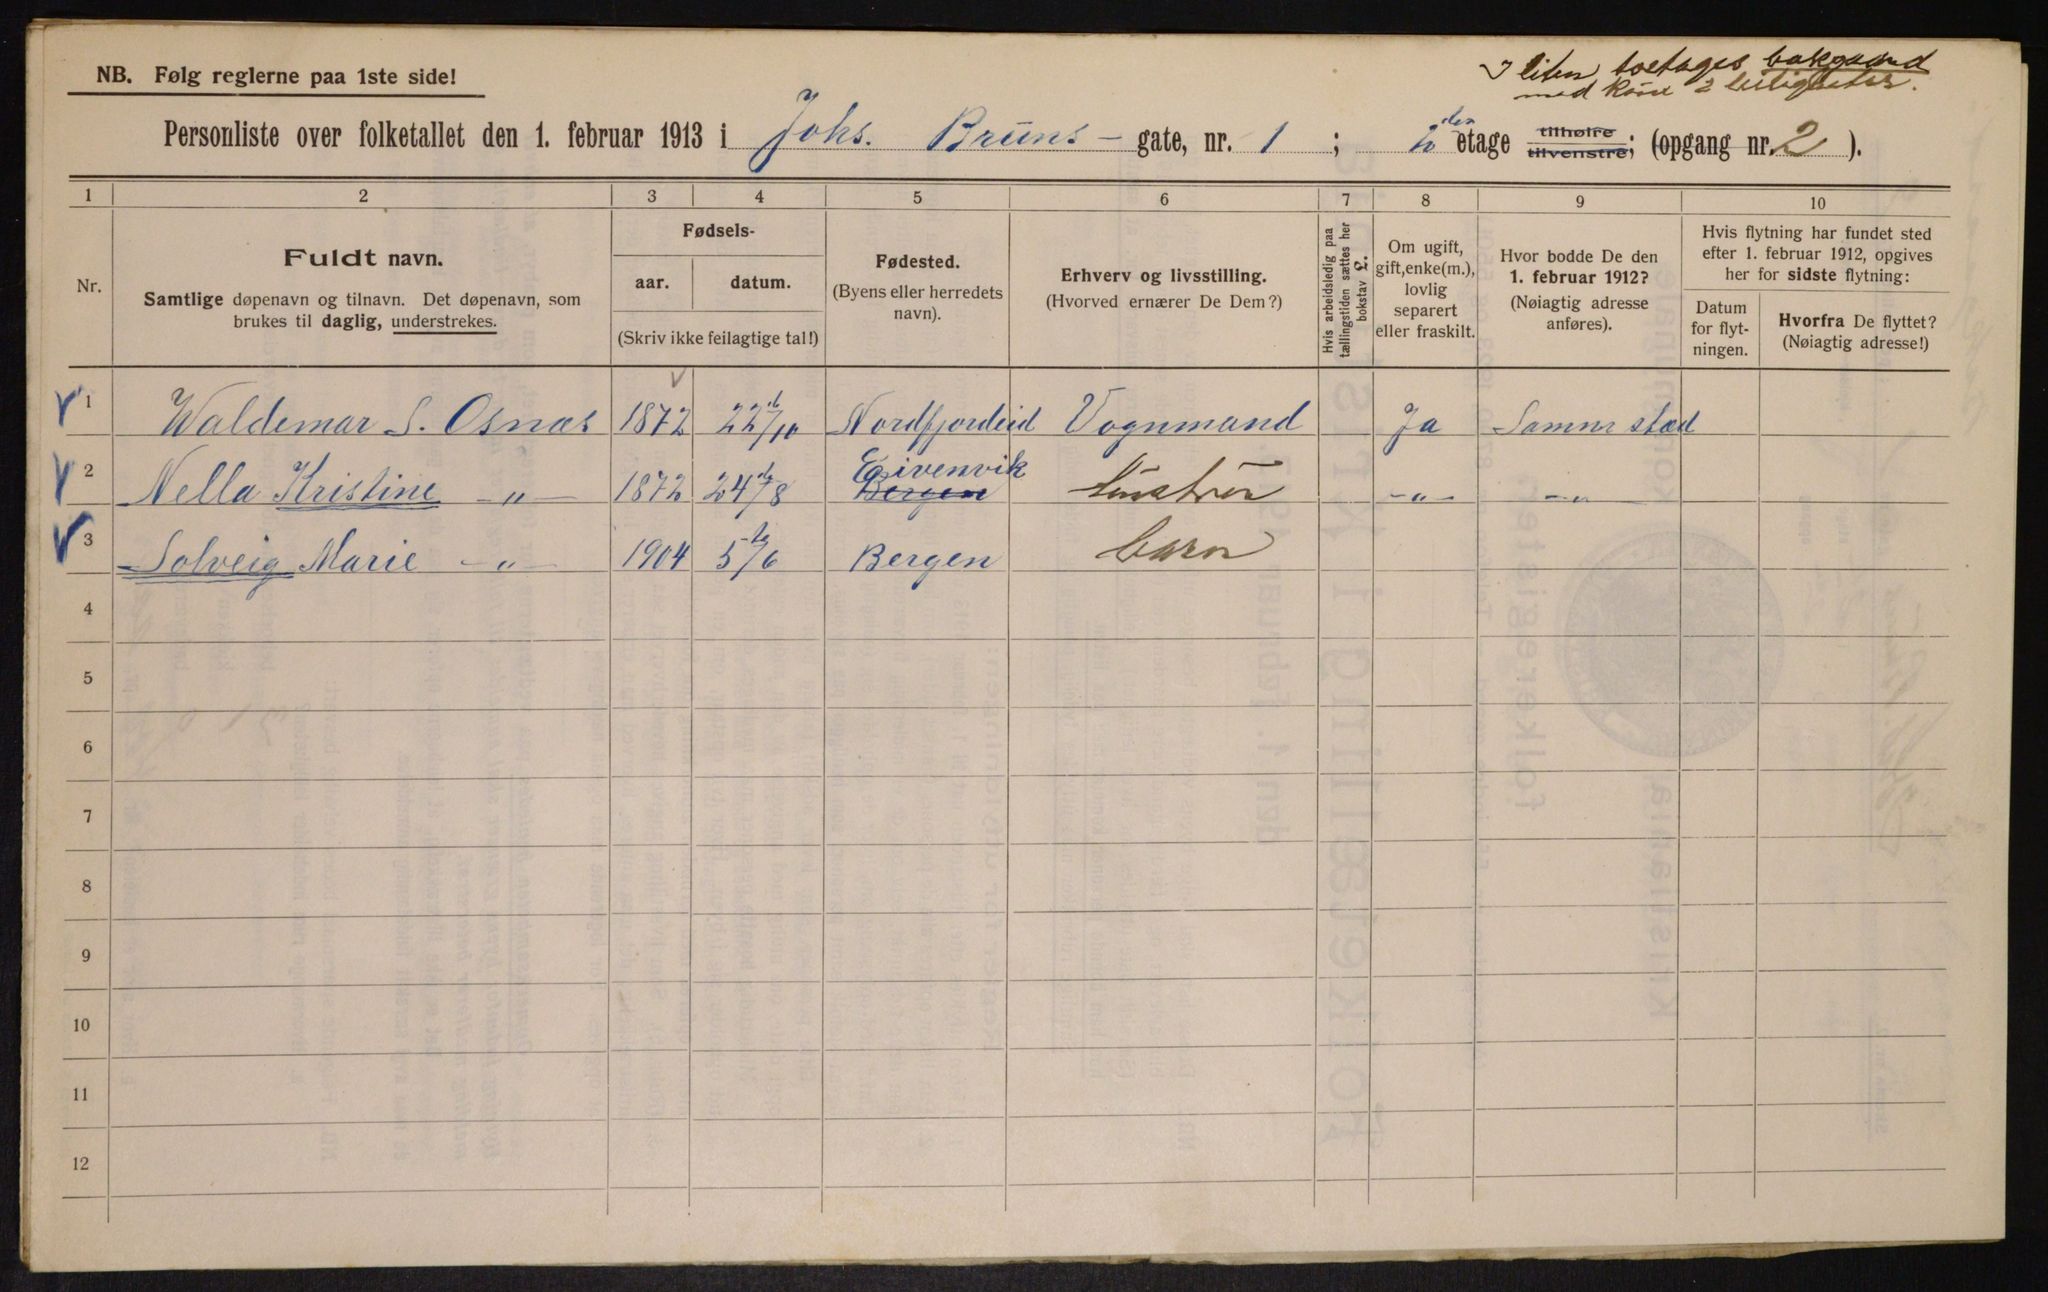 I liten toetages bakgaard
med kun 2 leiligheter.
NB. Følg reglerne paa 1ste side!
Personliste over folketallet den 1. februar 1913 i Johs. Bruns - gate, nr. 1 ; 2 den etage tilhøire tilvenstre; (opgang nr. 2 ).
1 2 3 4 5 6 7 8 9 10
Nr.
Fuldt navn.
Samtlige døpenavn og tilnavn. Det døpenavn, som
brukes til daglig, understrekes.
Fødsels-
aar. datum.
(Skriv ikke feilagtige tal!)
Fødested.
(Byens eller herredets
navn).
Erhverv og livsstilling.
(Hvorved ernærer De Dem?)
Hvis arbeidsledig paa
tællingstiden sættes her
bokstav L.
Om ugift,
gift, enke(m.),
lovlig
separert
eller fraskilt.
Hvor bodde De den
1. februar 1912?
(Nøiagtig adresse
anføres).
Hvis flytning har fundet sted
efter 1. februar 1912, opgives
her for sidste flytning:
Datum
for flyt-
ningen.
Hvorfra De flyttet?
(Nøiagtig adresse!)
1 Waldemar S. Osnæs 1872 22/10 Nordfjordeid Vognmand Ja Samme sted
2 Nella Kristine -"- 1872 24/8 Eivenvik Bergen hustru -"- -"-
3 Solveig Marie -"- 1904 5/6 Bergen barn
4
5
6
7
8
9
10
11
12